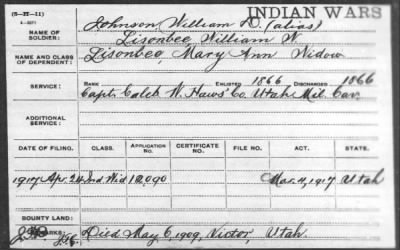 (5-22-11)
INDIAN WARS
NAME OF SOLDIER:
Johnson William D. (alias)
Lisonbee, William W.
NAME AND CLASS OF DEPENDENT:
Lisonbee, Mary Ann Widow
SERVICE:
RANK ENLISTED 1866 DISCHARGED 1866
Capt. Caleb W. Haws' Co. Utah Mil. Cav.
ADDITIONAL SERVICE:
DATE OF FILING. CLASS. APPLICATION NO. CERTIFICATE NO. FILE NO. ACT. STATE.
1917 Apr. 24 Ind. Wid Mar. 4, 1917 Utah
BOUNTY LAND:
Died May 6, 1909, Victor, Utah.